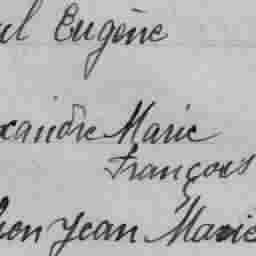 ul Eugène
xandre Marie
François
éon Jean Marie